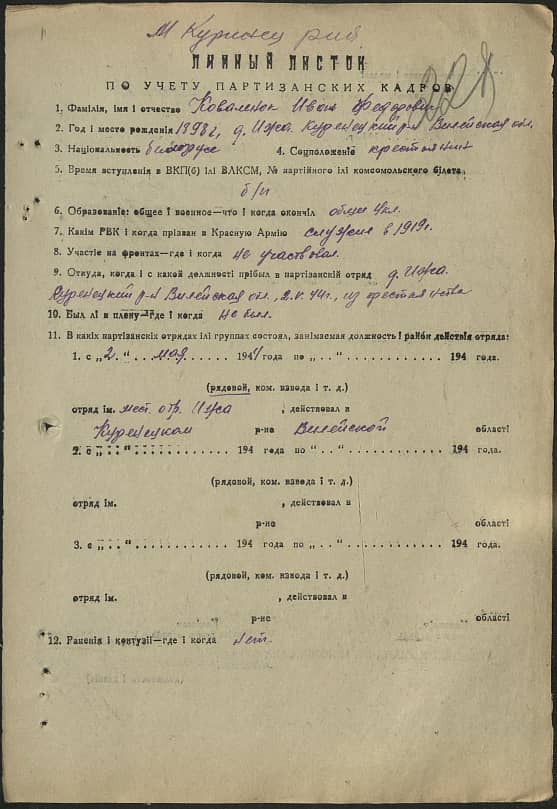 М Куринец рий
ЛИЧНЫЙ ЛИСТОК
ПО УЧЕТУ ПАРТИЗАНСКИХ КАДРОВ
228
1. Фамілія, імя і отчество Коваленок Иван Федорович
2. Год і место рождения 1898 г. д. Ижа. Куренецкий р-н Вилейская обл.
3. Національность белорусс 4. Соцположеніе крестьянин
5. Время вступленія в ВКП(б) ілі ВЛКСМ, № партійного ілі комсомольского білета
б/п
6. Образованіе: общее і военное—что і когда окончіл общ. 4 кл.
7. Какім РВК і когда прізван в Красную Армію служил в 1919 г.
8. Участіе на фронтах—где і когда не участвовал.
9. Откуда, когда і с какой должності прібыл в партізанскій отряд д. Ижа.
Куренецкий р-н Вилейская обл., 2.V.44 г., из крестьянства
10. Был лі в плену—где і когда не был.
11. В какіх партізанскіх отрядах ілі группах состоял, занімаемая должность і район действія отряда:
1. с „ 2. “ мая 1944 года по „ . . “ 194 года.
(рядовой, ком. взвода і т. д.)
отряд ім. мест. отр. Ижа , действовал в
Куренецком р-не Вилейской області
2. с „ . . “ 194 года по „ . . “ 194 года.
(рядовой, ком. взвода і т. д.)
отряд ім. , действовал в
р-не області
3. с „ . . “ 194 года по „ . . “ 194 года.
(рядовой, ком. взвода і т. д.)
отряд ім. , действовал в
р-не області
12. Раненія і контузіі—где і когда нет.